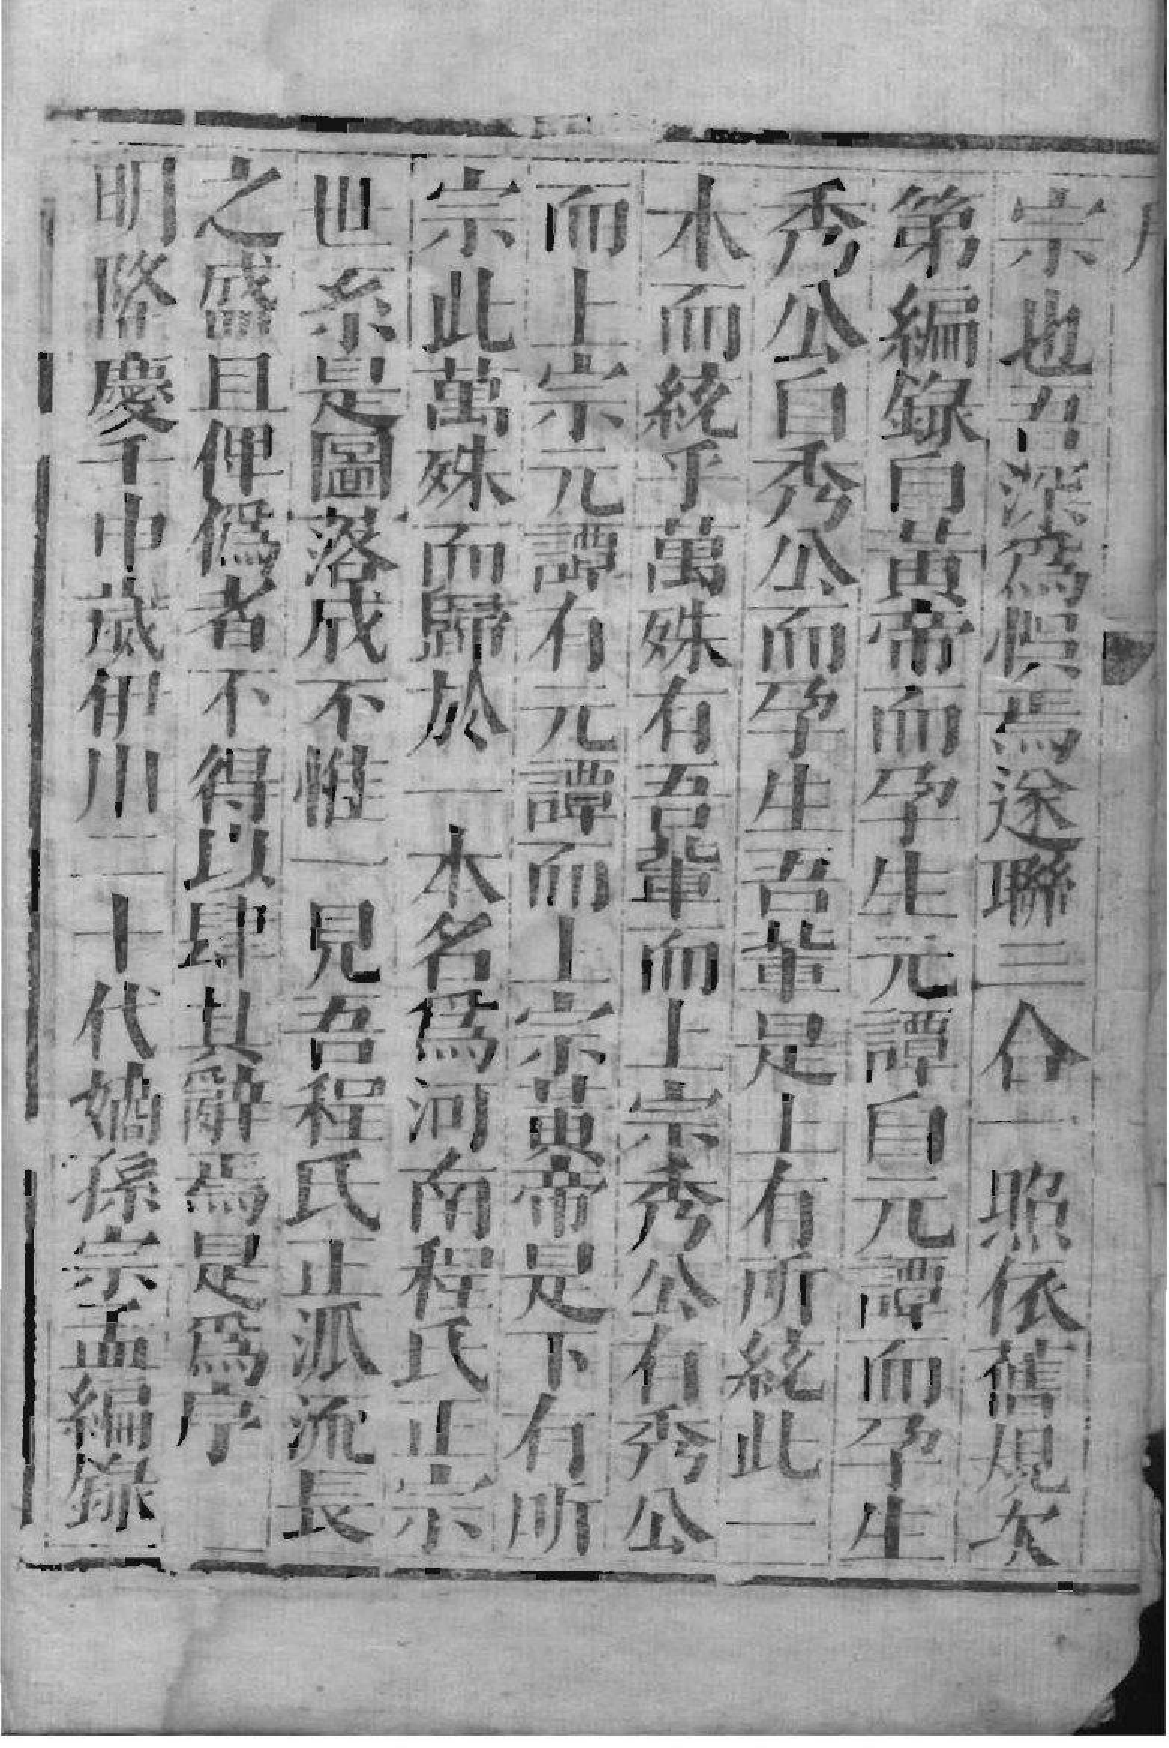 宗也吾深爲惧焉遂聯三合一照依舊規次
第編錄自黃帝而孕生元譚自元譚而孕生
秀公自秀公而孕生吾輩是上有所統此一
本而統乎萬殊有吾輩而上宗秀公有秀公
而上宗元譚有元譚而上宗黃帝是下有所
宗此萬殊而歸於一本名爲河南程氏正宗
世系是圖落成不惟一見吾程氏正派流長
之盛且俾僞者不得以肆其辭焉是爲序
明隆慶壬申歲伊川二十代嫡孫宗孟編錄